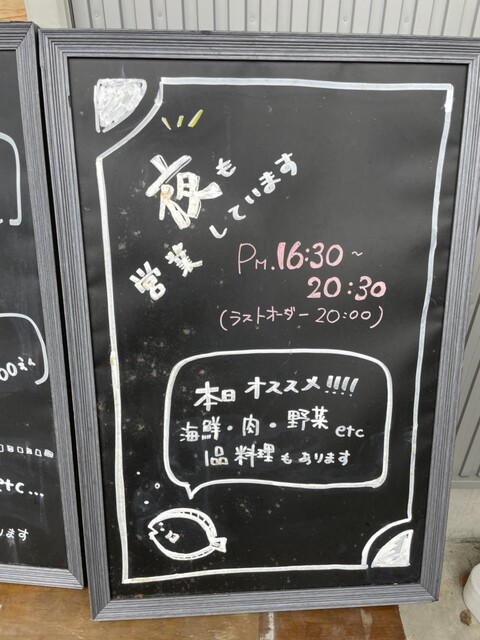 夜も
営業しています
PM.16:30~
20:30
(ラストオーダー 20:00)
本日オススメ!!!!
海鮮・肉・野菜 etc
1品料理もあります
00えん
etc...
ります